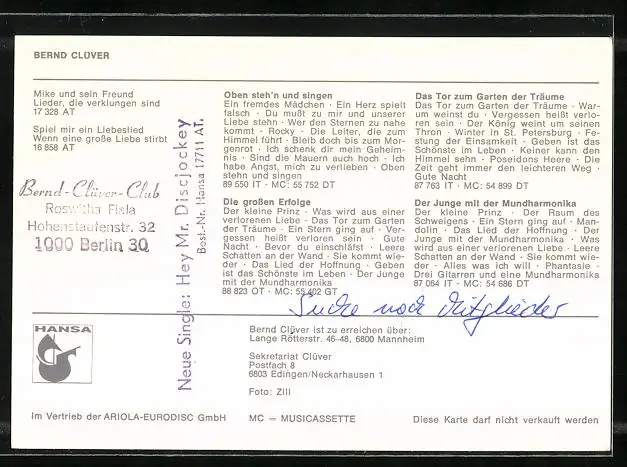 BERND CLÜVER
Mike und sein Freund
Lieder, die verklungen sind
17 328 AT
Spiel mir ein Liebeslied
Wenn eine große Liebe stirbt
16 858 AT
Bernd-Clüver-Club
Roswitha Fiala
Hohenstaufenstr. 32
1000 Berlin 30
Neue Single: Hey Mr. Discjockey
Best.-Nr. Hansa 17711 AT.
Oben steh'n und singen
Ein fremdes Mädchen · Ein Herz spielt
falsch · Du mußt zu mir und unserer
Liebe stehn · Wer den Sternen zu nahe
kommt · Rocky · Die Leiter, die zum
Himmel führt · Bleib doch bis zum Mor-
genrot · Ich schenk dir mein Geheim-
nis · Sind die Mauern auch hoch · Ich
habe Angst, mich zu verlieben · Oben
stehn und singen
89 550 IT · MC: 55 752 DT
Die großen Erfolge
Der kleine Prinz · Was wird aus einer
verlorenen Liebe · Das Tor zum Garten
der Träume · Ein Stern ging auf · Ver-
gessen heißt verloren sein · Gute
Nacht · Bevor du einschläfst · Leere
Schatten an der Wand · Sie kommt wie-
der · Das Lied der Hoffnung · Geben
ist das Schönste im Leben · Der Junge
mit der Mundharmonika
88 823 OT · MC: 55 402 GT
Das Tor zum Garten der Träume
Das Tor zum Garten der Träume · War-
um weinst du · Vergessen heißt verlo-
ren sein · Der König weint um seinen
Thron · Winter in St. Petersburg · Fe-
stung der Einsamkeit · Geben ist das
Schönste im Leben · Keiner kann den
Himmel sehn · Poseidons Heere · Die
Zeit geht immer den leichteren Weg ·
Gute Nacht
87 763 IT · MC: 54 899 DT
Der Junge mit der Mundharmonika
Der kleine Prinz · Der Raum des
Schweigens · Ein Stern ging auf · Man-
dolin · Das Lied der Hoffnung · Der
Junge mit der Mundharmonika · Was
wird aus einer verlorenen Liebe · Leere
Schatten an der Wand · Sie kommt wie-
der · Alles was ich will · Phantasie ·
Drei Gitarren und eine Mundharmonika
87 064 IT · MC: 54 686 DT
Suche noch Mitglieder
HANSA
Bernd Clüver ist zu erreichen über:
Lange Rötterstr. 46-48, 6800 Mannheim
Sekretariat Clüver
Postfach 8
6803 Edingen/Neckarhausen 1
Foto: Zill
Im Vertrieb der ARIOLA-EURODISC GmbH
MC = MUSICASSETTE
Diese Karte darf nicht verkauft werden